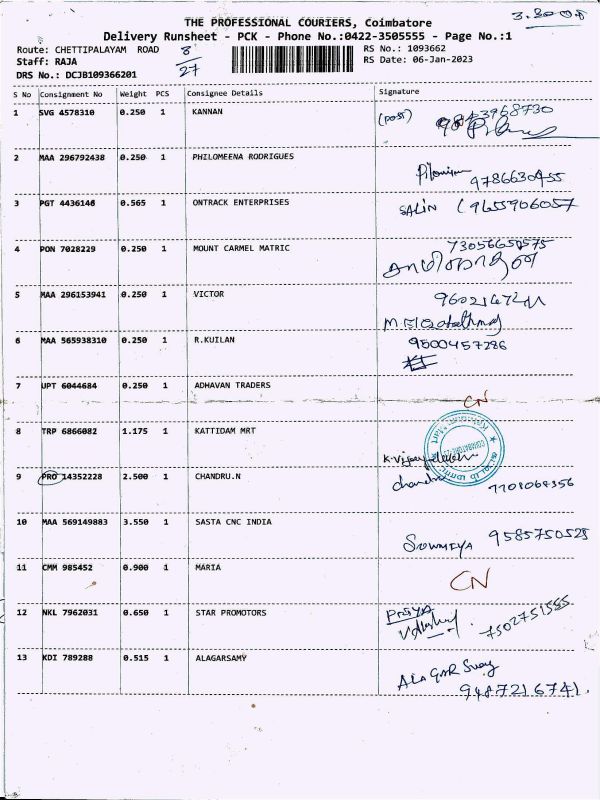 THE PROFESSIONAL COURIERS, Coimbatore
Delivery Runsheet - PCK - Phone No.:0422-3505555 - Page No.:1
Route: CHETTIPALAYAM ROAD
8
27
RS No.: 1093662
Staff: RAJA
RS Date: 06-Jan-2023
DRS No.: DCJB109366201
S No Consignment No Weight PCS Consignee Details Signature
1 SVG 4578310 0.250 1 KANNAN (post)
2 MAA 296792438 0.250 1 PHILOMEENA RODRIGUES
9786630455
3 PGT 4436146 0.565 1 ONTRACK ENTERPRISES SALIN 9655906057
4 PON 7028229 0.250 1 MOUNT CARMEL MATRIC
5 MAA 296153941 0.250 1 VICTOR
6 MAA 565938310 0.250 1 R.KUILAN 9500457286
7 UPT 6044684 0.250 1 ADHAVAN TRADERS
CN
8 TRP 6866082 1.175 1 KATTIDAM MRT
9 PRO 14352228 2.500 1 CHANDRU.N
7701064356
10 MAA 569149883 3.550 1 SASTA CNC INDIA
SOWMIYA 9585750525
11 CMM 985452 0.900 1 MARIA
CN
12 NKL 7962031 0.650 1 STAR PROMOTORS PRIYA
7502751555
13 KDI 789288 0.515 1 ALAGARSAMY
9487216741